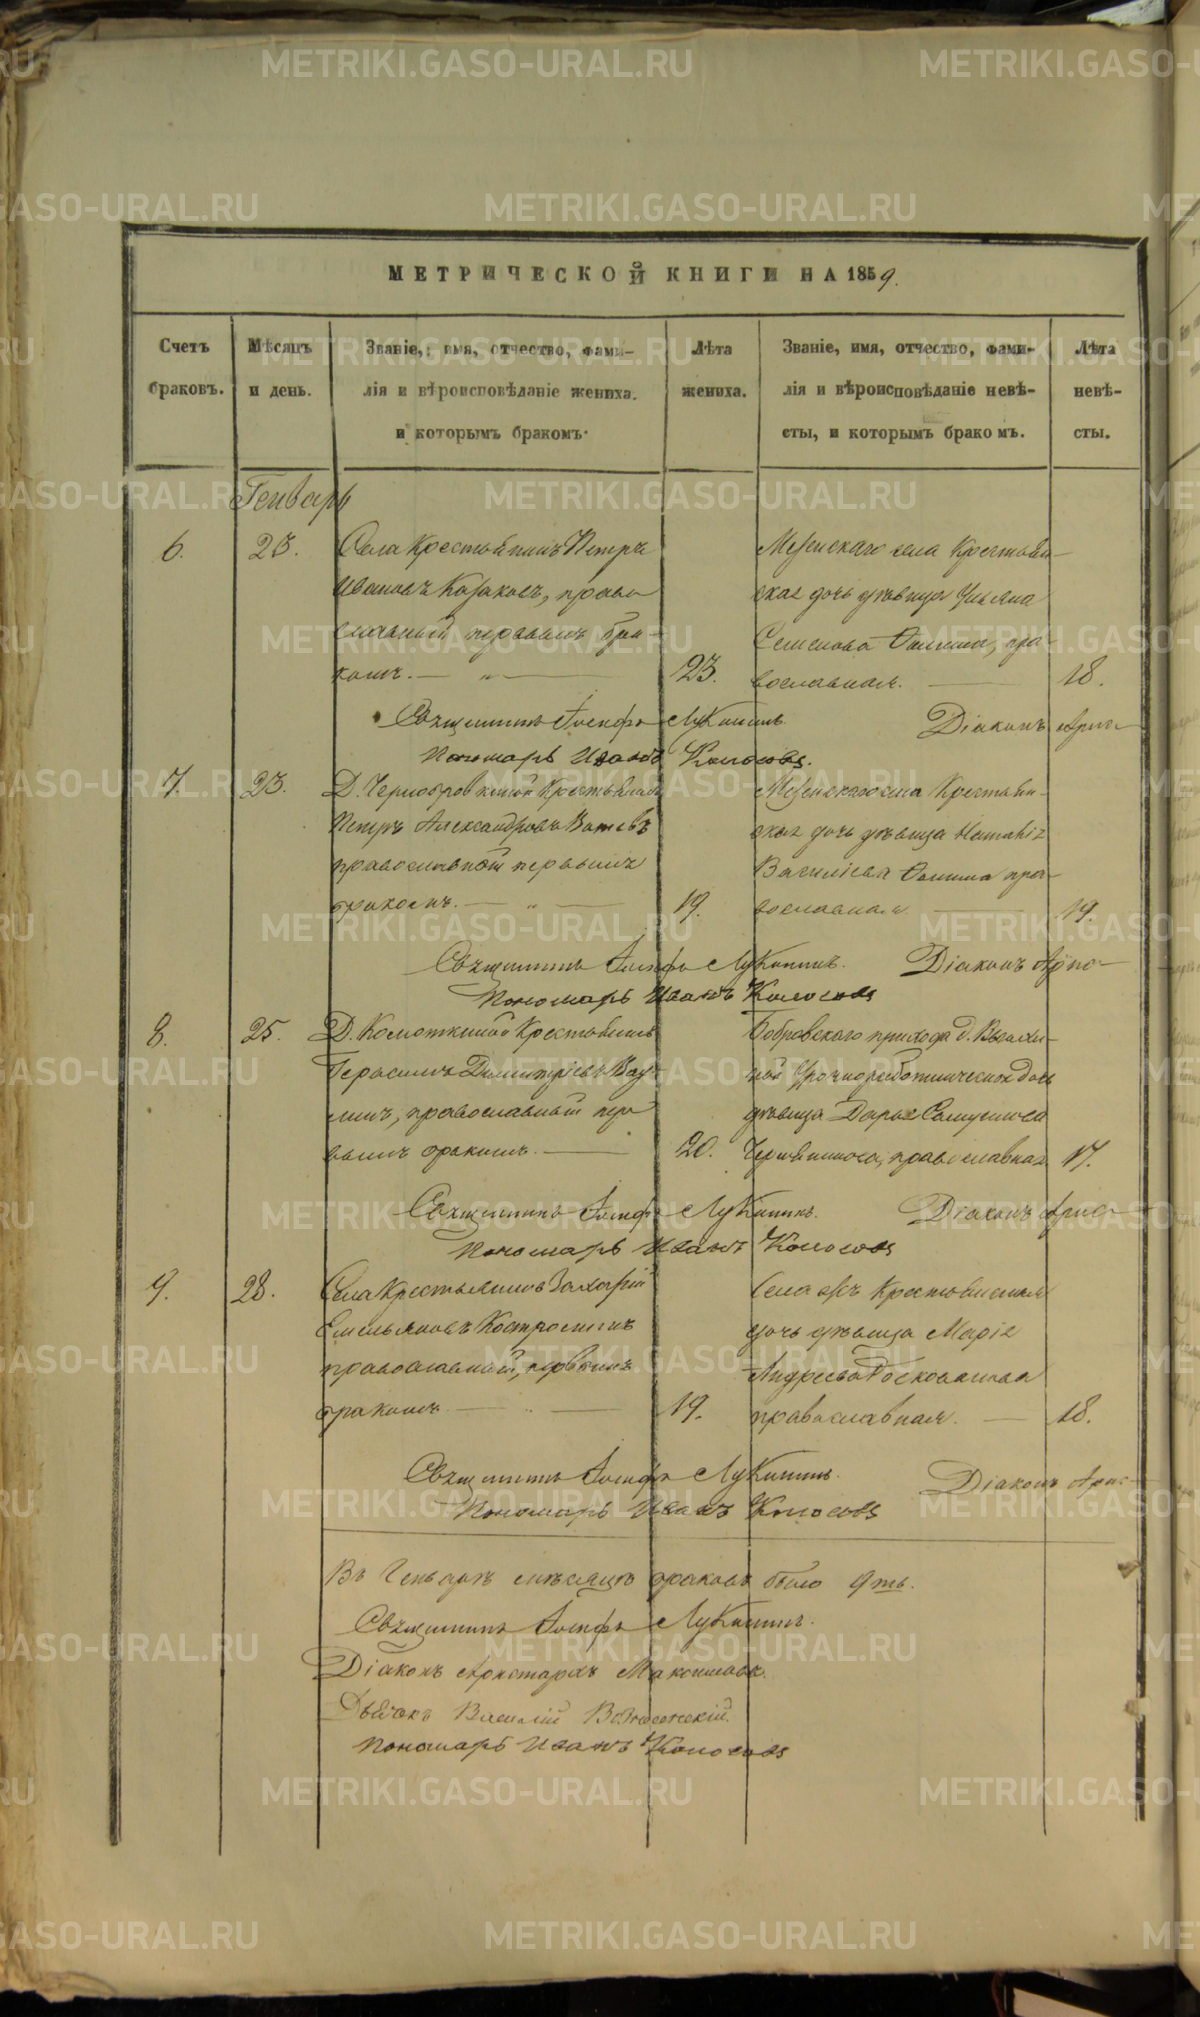 МЕТРИЧЕСКОЙ КНИГИ НА 1859.
Счетъ браковъ.
Мѣсяцъ и день.
Званіе, имя, отчество, фами-
лія и вѣроисповѣданіе жениха.
и которымъ бракомъ.
Лѣта жениха.
Званіе, имя, отчество, фами-
лія и вѣроисповѣданіе невѣ-
сты, и которымъ бракомъ.
Лѣта невѣ-
сты.
Генварь
6. 23. Села Крестьянинъ Петръ
Ивановъ Казаковъ, право
славный первымъ бра-
комъ. 23.
Мезенскаго села Крестьян-
ская дочь дѣвица Ульяна
Семенова Ѳомина, пра-
вославная. 18.
Священникъ Іосифъ Лукининъ. Діаконъ Арис-
Пономарь Иванъ Колосовъ.
7. 23. Д. Чернобровкиной Крестьянинъ
Петръ Александровъ
православной первымъ
бракомъ. 19.
Мезенскаго села Крестьян-
ская дочь дѣвица Наталія
Василіева Ѳомина пра-
вославная 19.
Священникъ Іосифъ Лукининъ. Діаконъ Арис-
Пономарь Иванъ Колосовъ
8. 25. Крестьянинъ
Герасимъ Димитріевъ
православный пер
вымъ бракомъ. 20.
Бобровскаго прихода д.
дочь
дѣвица Дарья Самуилова
православная 17.
Священникъ Іосифъ Лукининъ. Діаконъ Арис-
Пономарь Иванъ Колосовъ
9. 28. Села Крестьянинъ Захарій
Емельяновъ Костроминъ
православный, первымъ
бракомъ. 19.
Села Крестьянская
дочь дѣвица Марія
Андреева
православная. 18.
Священникъ Іосифъ Лукининъ. Діаконъ Арис-
Пономарь Иванъ Колосовъ
Въ Генварѣ мѣсяцѣ браковъ было 9ть.
Священникъ Іосифъ Лукининъ.
Діаконъ Аристархъ Максимовъ.
Дьячокъ Василій
Пономарь Иванъ Колосовъ
METRIKI.GASO-URAL.RU